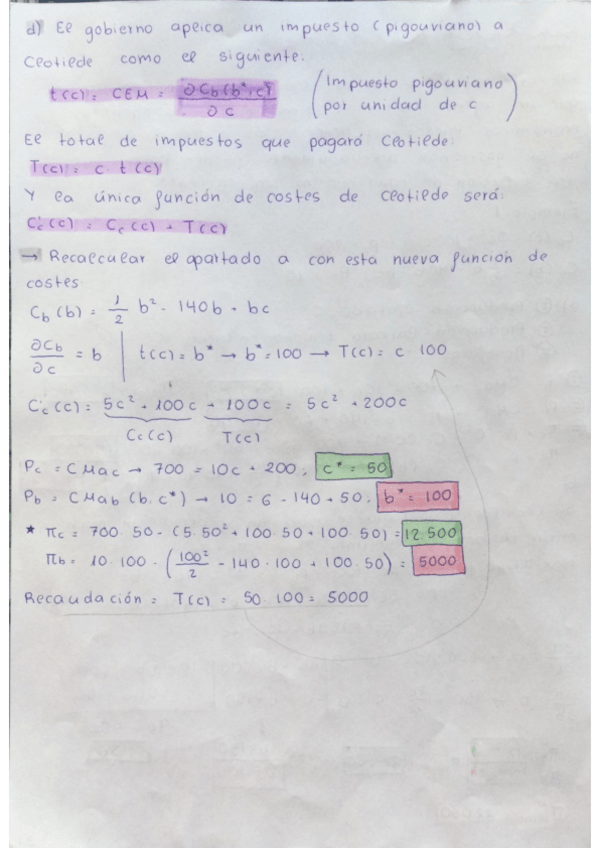 d) El gobierno aplica un impuesto (pigouviano) a
Clotilde como el siguiente:
t(c) = CEM = ∂Cb(b*,c) / ∂c (Impuesto pigouviano por unidad de c)
El total de impuestos que pagará Clotilde:
T(c) = c · t(c)
Y la única función de costes de Clotilde será:
C'c(c) = Cc(c) + T(c)
→ Recalcular el apartado a con esta nueva función de
costes
Cb(b) = 1/2 b² - 140b + bc
∂Cb/∂c = b | t(c) = b* → b* = 100 → T(c) = c · 100
C'c(c) = 5c² + 100c + 100c = 5c² + 200c
Cc(c) T(c)
Pc = CMac → 700 = 10c + 200, c* = 50
Pb = CMab (b, c*) → 10 = b - 140 + 50, b* = 100
* πc = 700 · 50 - (5 · 50² + 100 · 50 + 100 · 50) = 12.500
πb = 10 · 100 - (100²/2 - 140 · 100 + 100 · 50) = 5000
Recaudación = T(c) = 50 · 100 = 5000